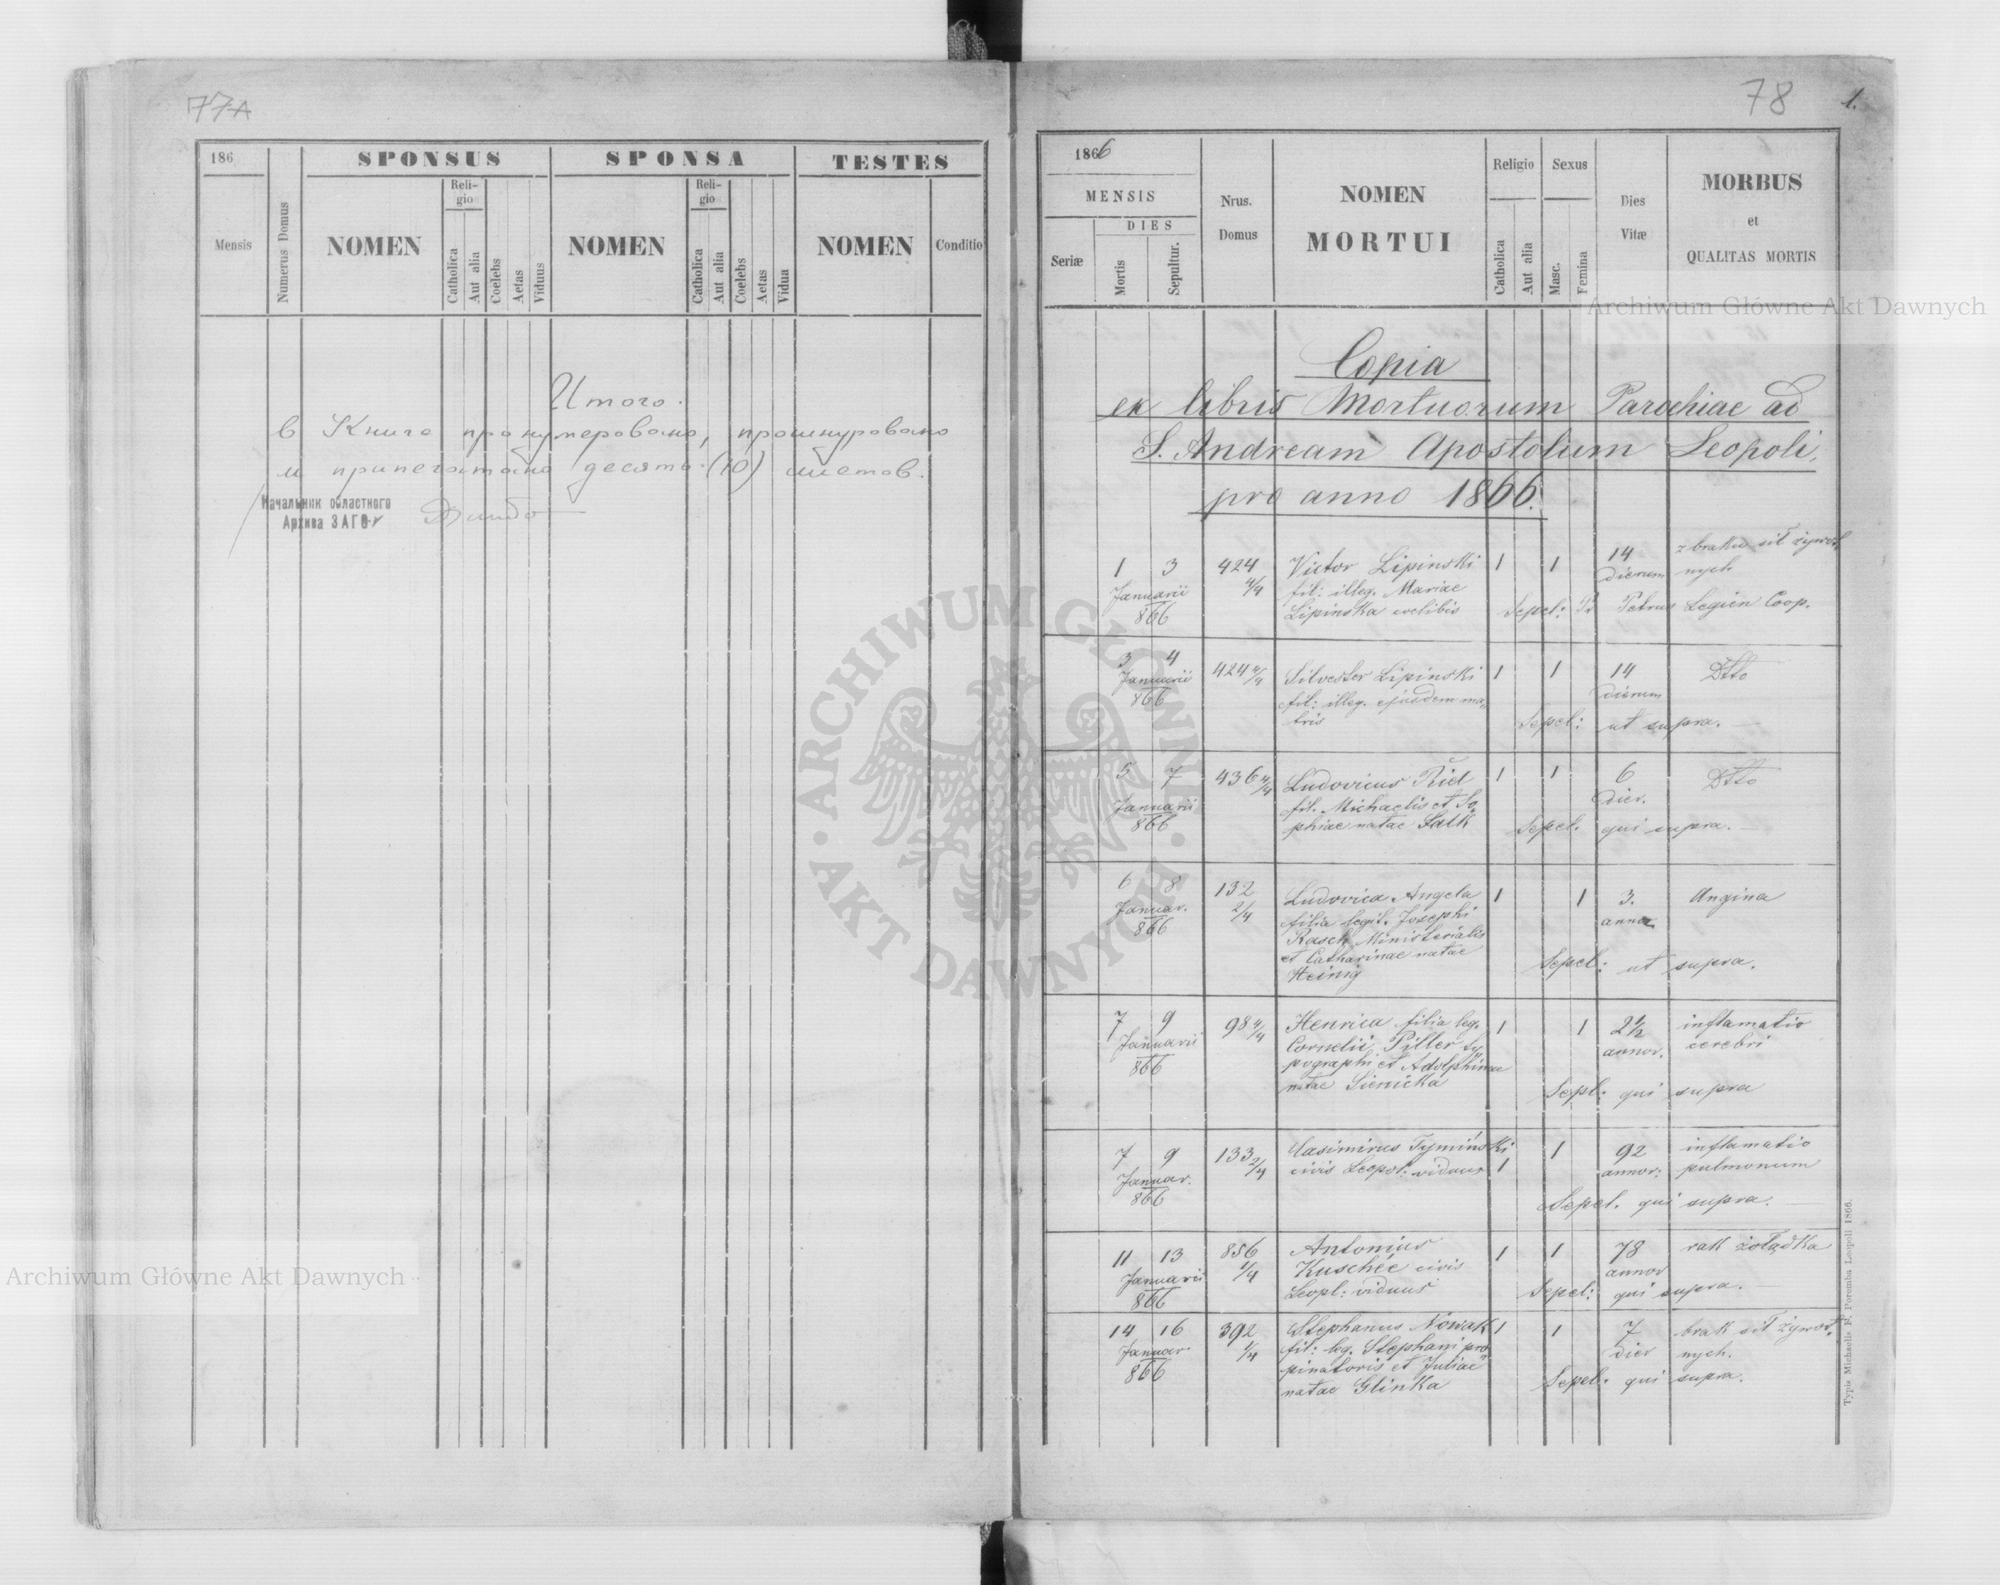 77A
186
Mensis
Numerus Domus
SPONSUS
NOMEN
Reli-
gio
Catholica
Aut alia
Coelebs
Aetas
Viduus
SPONSA
NOMEN
Reli-
gio
Catholica
Aut alia
Coelebs
Aetas
Vidua
TESTES
NOMEN
Conditio
Итого.
в Книге пронумеровано, прошнуровано
и припечатано десять (10) листов.
Начальник областного
Архива ЗАГС
78 1.
1866
MENSIS
Seriæ
DIES
Mortis
Sepultur.
Nrus.
Domus
NOMEN
MORTUI
Religio
Catholica
Aut alia
Sexus
Masc.
Femina
Dies
Vitæ
MORBUS
et
QUALITAS MORTIS
Copia
ex libris Mortuorum Parochiae ad
S. Andream Apostolum Leopoli,
pro anno 1866.
1 3 424 Victor Lipinski 1 1 14 z braku sił żywot
Januarii 4/4 fil: illeg. Mariae dierum nych
866 Lipinska coelibis Sepel: Petrus Legien Coop.
3 4 424 4/4 Silvester Lipinski 1 1 14 Dtto
Januarii fil: illeg. ejusdem ma- dierum
866 tris Sepel: ut supra.
5 7 436 4/4 Ludovicus Řiel 1 1 6 Dtto
Januarii fil. Michaelis et So- dier.
866 phiae natae Salk Sepel. qui supra.
6 8 132 Ludovica Angela 1 1 3. Angina
Januar. 2/4 filia legit. Josephi annor.
866 Rasch Ministerialis
et Catharinae natae Sepel: ut supra.
Heinig
7 9 98 4/4 Henrica filia leg. 1 1 2 1/2 inflamatio
Januarii Cornelii Piller ty- annor. cerebri
866 pographi et Adolphinae
natae Sienicka Sepl: qui supra
7 9 133 2/4 Casimirus Tymiński 1 1 92 inflamatio
Januar. civis Leopol: viduus annor: pulmonum
866 Sepel. qui supra.
11 13 856 Antonius 1 1 78 rak żołądka
Januarii 1/4 Kuschée civis annor
866 Leopl: viduus Sepel: qui supra.
14 16 392 Stephanus Nowak 1 1 7 brak sił żywot.
Januar 1/4 fil: leg. Stephani pro- dier nych.
866 pinatoris et Juliae
natae Glinka Sepel. qui supra.
Typis Michaelis F. Poremba Leopoli 1866.
Archiwum Główne Akt Dawnych
Archiwum Główne Akt Dawnych
ARCHIWUM GŁÓWNE · AKT DAWNYCH ·